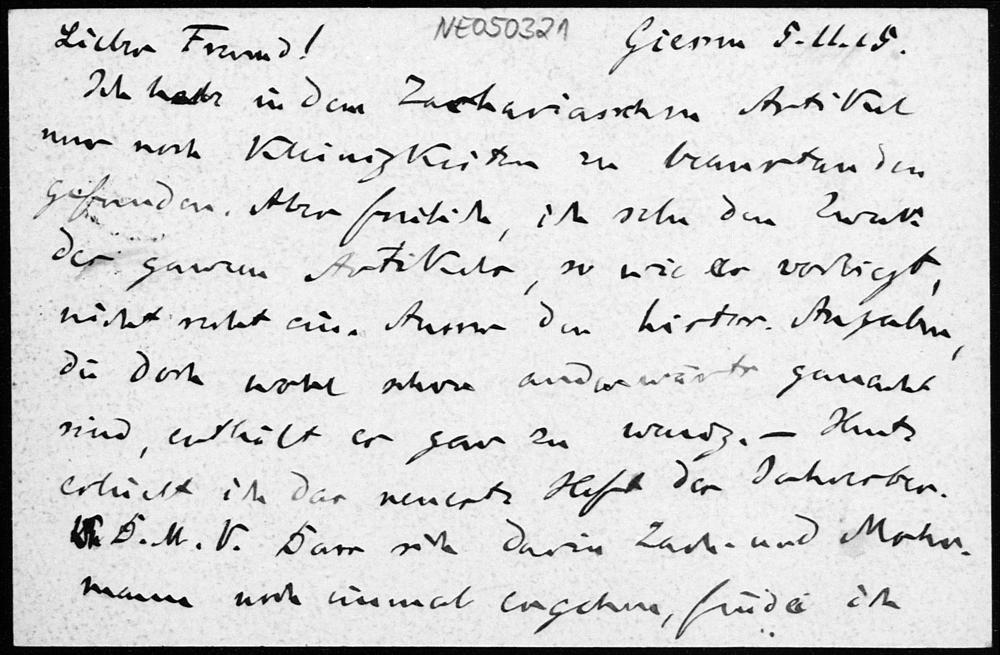 NE050321
Lieber Freund! Giessen 5.11.15.
Ich habe in dem Zachariasschen Artikel
nur noch Kleinigkeiten zu beanstanden
gefunden. Aber freilich, ich sehe den Zweck
des ganzen Artikels, so wie er vorliegt,
nicht recht ein. Ausser den histor. Angaben,
die doch wohl schon anderwärts gemacht
sind, enthält er gar zu wenig. — Heute
erhielt ich das neueste Heft der Jahresber.
D.M.V. Dass sich darin Zach. und Mohr-
mann noch einmal ergehen, finde ich